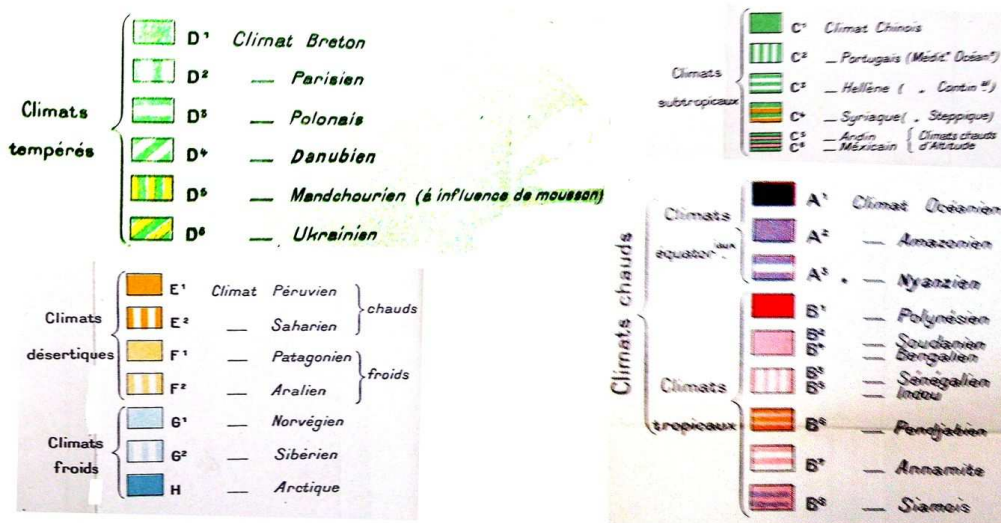 Climats tempérés
D¹ Climat Breton
D² — Parisien
D³ — Polonais
D⁴ — Danubien
D⁵ — Mandchourien (á influence de mousson)
D⁶ — Ukrainien
Climats désertiques
E¹ Climat Péruvien
E² — Saharien
chauds
F¹ — Patagonien
F² — Aralien
froids
Climats froids
G¹ — Norvégien
G² — Sibérien
H — Arctique
Climats subtropicaux
C¹ Climat Chinois
C² — Portugais (Méditⁿ Océanⁿ)
C³ — Hellène ( „ Continᵃˡ)
C⁴ — Syriaque ( „ Steppique)
C⁵ — Andin
C⁶ — Méxicain
Climats chauds d'Altitude
Climats chauds
Climats équatorⁱᵃᵘˣ
A¹ Climat Océanien
A² — Amazonien
A³ — Nyanzien
Climats tropicaux
B¹ — Polynésien
B² — Soudanien
B⁴ — Bengalien
B³ — Sénégalien
B⁵ — Indou
B⁶ — Pendjabien
B⁷ — Annamite
B⁸ — Siamois